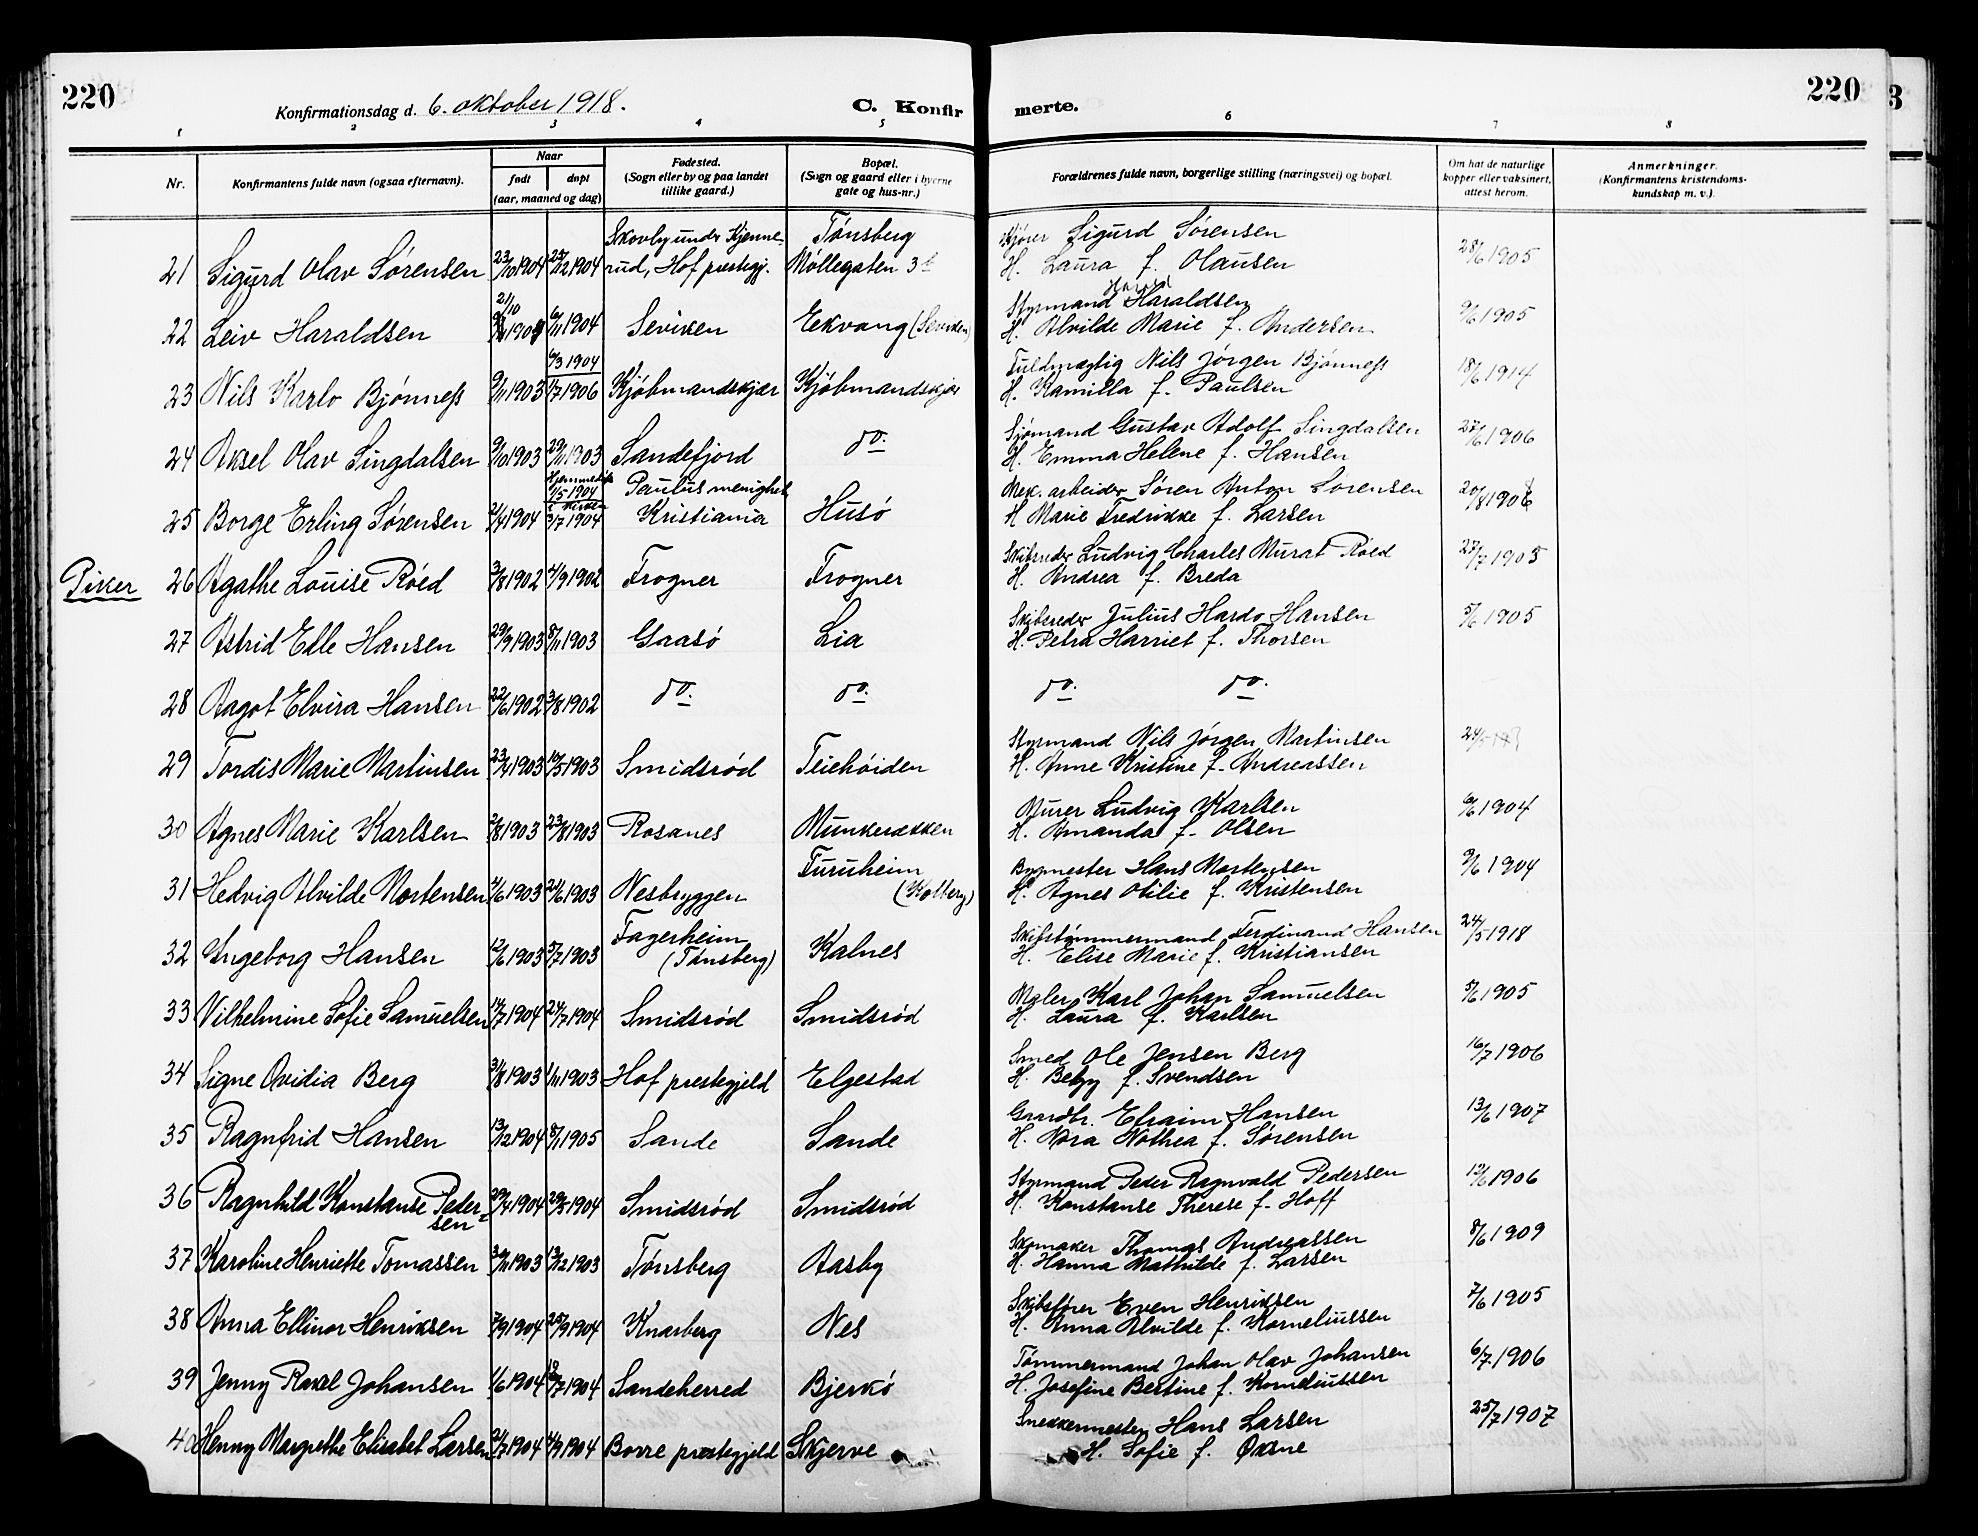 220
Konfirmationsdag d. 6. oktober 1918.
C. Konfirmerte.
220
3
1 2 3 4 5 6 7 8
Nr.
Konfirmantens fulde navn (ogsaa efternavn).
Naar
født
døpt
(aar, maaned og dag)
Fødested.
(Sogn eller by og paa landet
tillike gaard.)
Bopæl.
(Sogn og gaard eller i byerne
gate og hus-nr.)
Forældrenes fulde navn, borgerlige stilling (næringsvei) og bopæl.
Om hat de naturlige
kopper eller vaksinert,
attest herom.
Anmerkninger.
(Konfirmantens kristendoms-
kundskap m. v.)
Skovby under Kjenne- Tønsberg Kjører Sigurd Sørensen
21 Sigurd Olav Sørensen 23/10 1904 26/12 1904 rud, Hof prestegj. Møllegaten 3 H. Laura f. Olausen 28/6 1905
21/10 Styrmand Harald Haraldsen
22 Leiv Haraldsen 1904 6/11 1904 Seviken Ekvang (Seviken) H. Alvilde Marie f. Andersen 9/6 1905
6/3 1904 Fuldmægtig Nils Jørgen Bjønness
23 Nils Karlo Bjønness 9/11 1903 1/7 1906 Kjøbmandskjær Kjøbmandskjær H. Kamilla f. Paulsen 18/6 1914
Sjømand Gustav Adolf Lingdalsen
24 Aksel Olav Lingdalsen 9/10 1903 29/11 1903 Sandefjord do. H. Emma Helene f. Hansen 27/6 1906
Hjemmedøpt 1/5 1904 Paulus menighet Mek. arbeider Søren Anton Sørensen
25 Borge Erling Sørensen 2/4 1904 i kirken 3/7 1904 Kristiania Husø H Marie Fredrikke f. Larsen 20/8 1908
Piker
Skibsreder Ludvig Charles Murat Røed
26 Agathe Louise Røed 3/8 1902 4/9 1902 Frogner Frogner H. Andrea f. Breda 27/7 1903
Skibsreder Julius Hardo Hansen
27 Astrid Edle Hansen 29/9 1903 8/11 1903 Gaasø Lia H. Petra Harriet f. Thorsen 5/6 1905
28 Aagot Elvira Hansen 22/6 1902 3/8 1902 do. do. do. do.
Styrmand Nils Jørgen Martinsen
29 Tordis Marie Martinsen 23/4 1903 10/5 1903 Smidsrød Teiehøiden H. Anne Kristine f. Andreassen
Murer Ludvig Karlsen
30 Agnes Marie Karlsen 2/8 1903 23/8 1903 Rosanes Munkerækken H. Amanda f. Olsen 10/6 1904
Furuheim Bygmester Hans Mortensen
31 Hedvig Alvilde Mortensen 4/6 1903 21/6 1903 Nesbryggen (Kolberg) H. Agnes Otilie f. Kristensen 9/6 1904
Fagerheim Skibstømmermand Ferdinand Hansen
32 Ingeborg Hansen 12/6 1903 5/7 1903 (Tønsberg) Kalnes H. Elise Marie f. Kristiansen 24/5 1918
Maler Karl Johan Samuelsen
33 Vilhelmine Sofie Samuelsen 14/7 1904 24/7 1904 Smidsrød Smidsrød H. Laura f. Karlsen 5/6 1905
Smed Ole Jensen Berg
34 Signe Ovidia Berg 31/8 1903 1/11 1903 Hof prestegjeld Elgestad H. Betzy f. Svendsen 16/7 1906
Gaardbr. Efraim Hansen
35 Ragnfrid Hansen 13/12 1904 8/1 1905 Sande Sande H. Nora Nathea f. Sørensen 13/6 1907
Styrmand Peder Ragnvald Pedersen
36 Ragnhild Konstanse Peder= 20/4 1904 29/5 1904 Smidsrød Smidsrød H. Konstanse Therese f. Hoff 12/6 1906
sen
Skomaker Thomas Andreassen
37 Karoline Henriette Tomassen 30/11 1903 13/12 1903 Tønsberg Aasby H. Hanna Mathilde f. Larsen 8/6 1909
Skibsfører Even Henriksen
38 Anna Ellinor Henriksen 7/9 1904 25/9 1904 Knarberg Nes H. Anna Alvilde f. Korneliussen 7/6 1905
Tømmermand Johan Olav Johansen
39 Jenny Rakel Johansen 1/6 1904 10/7 1904 Sandeherred Bjerkø H. Josefine Bertine f. Korneliussen 6/7 1906
Snekkermester Hans Larsen
40 Henny Margrethe Elisabet Larsen 21/7 1904 4/9 1904 Borre prestegjeld Skjerve H. Sofie f. Øxne 25/7 1907